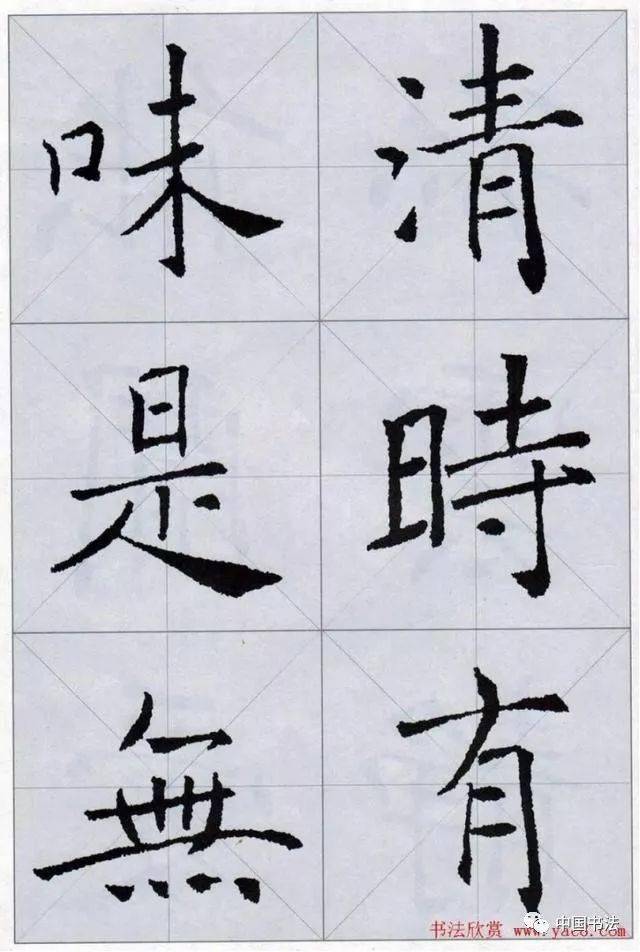 清時有
味是無
书法欣赏 www.yac8.com
中国书法